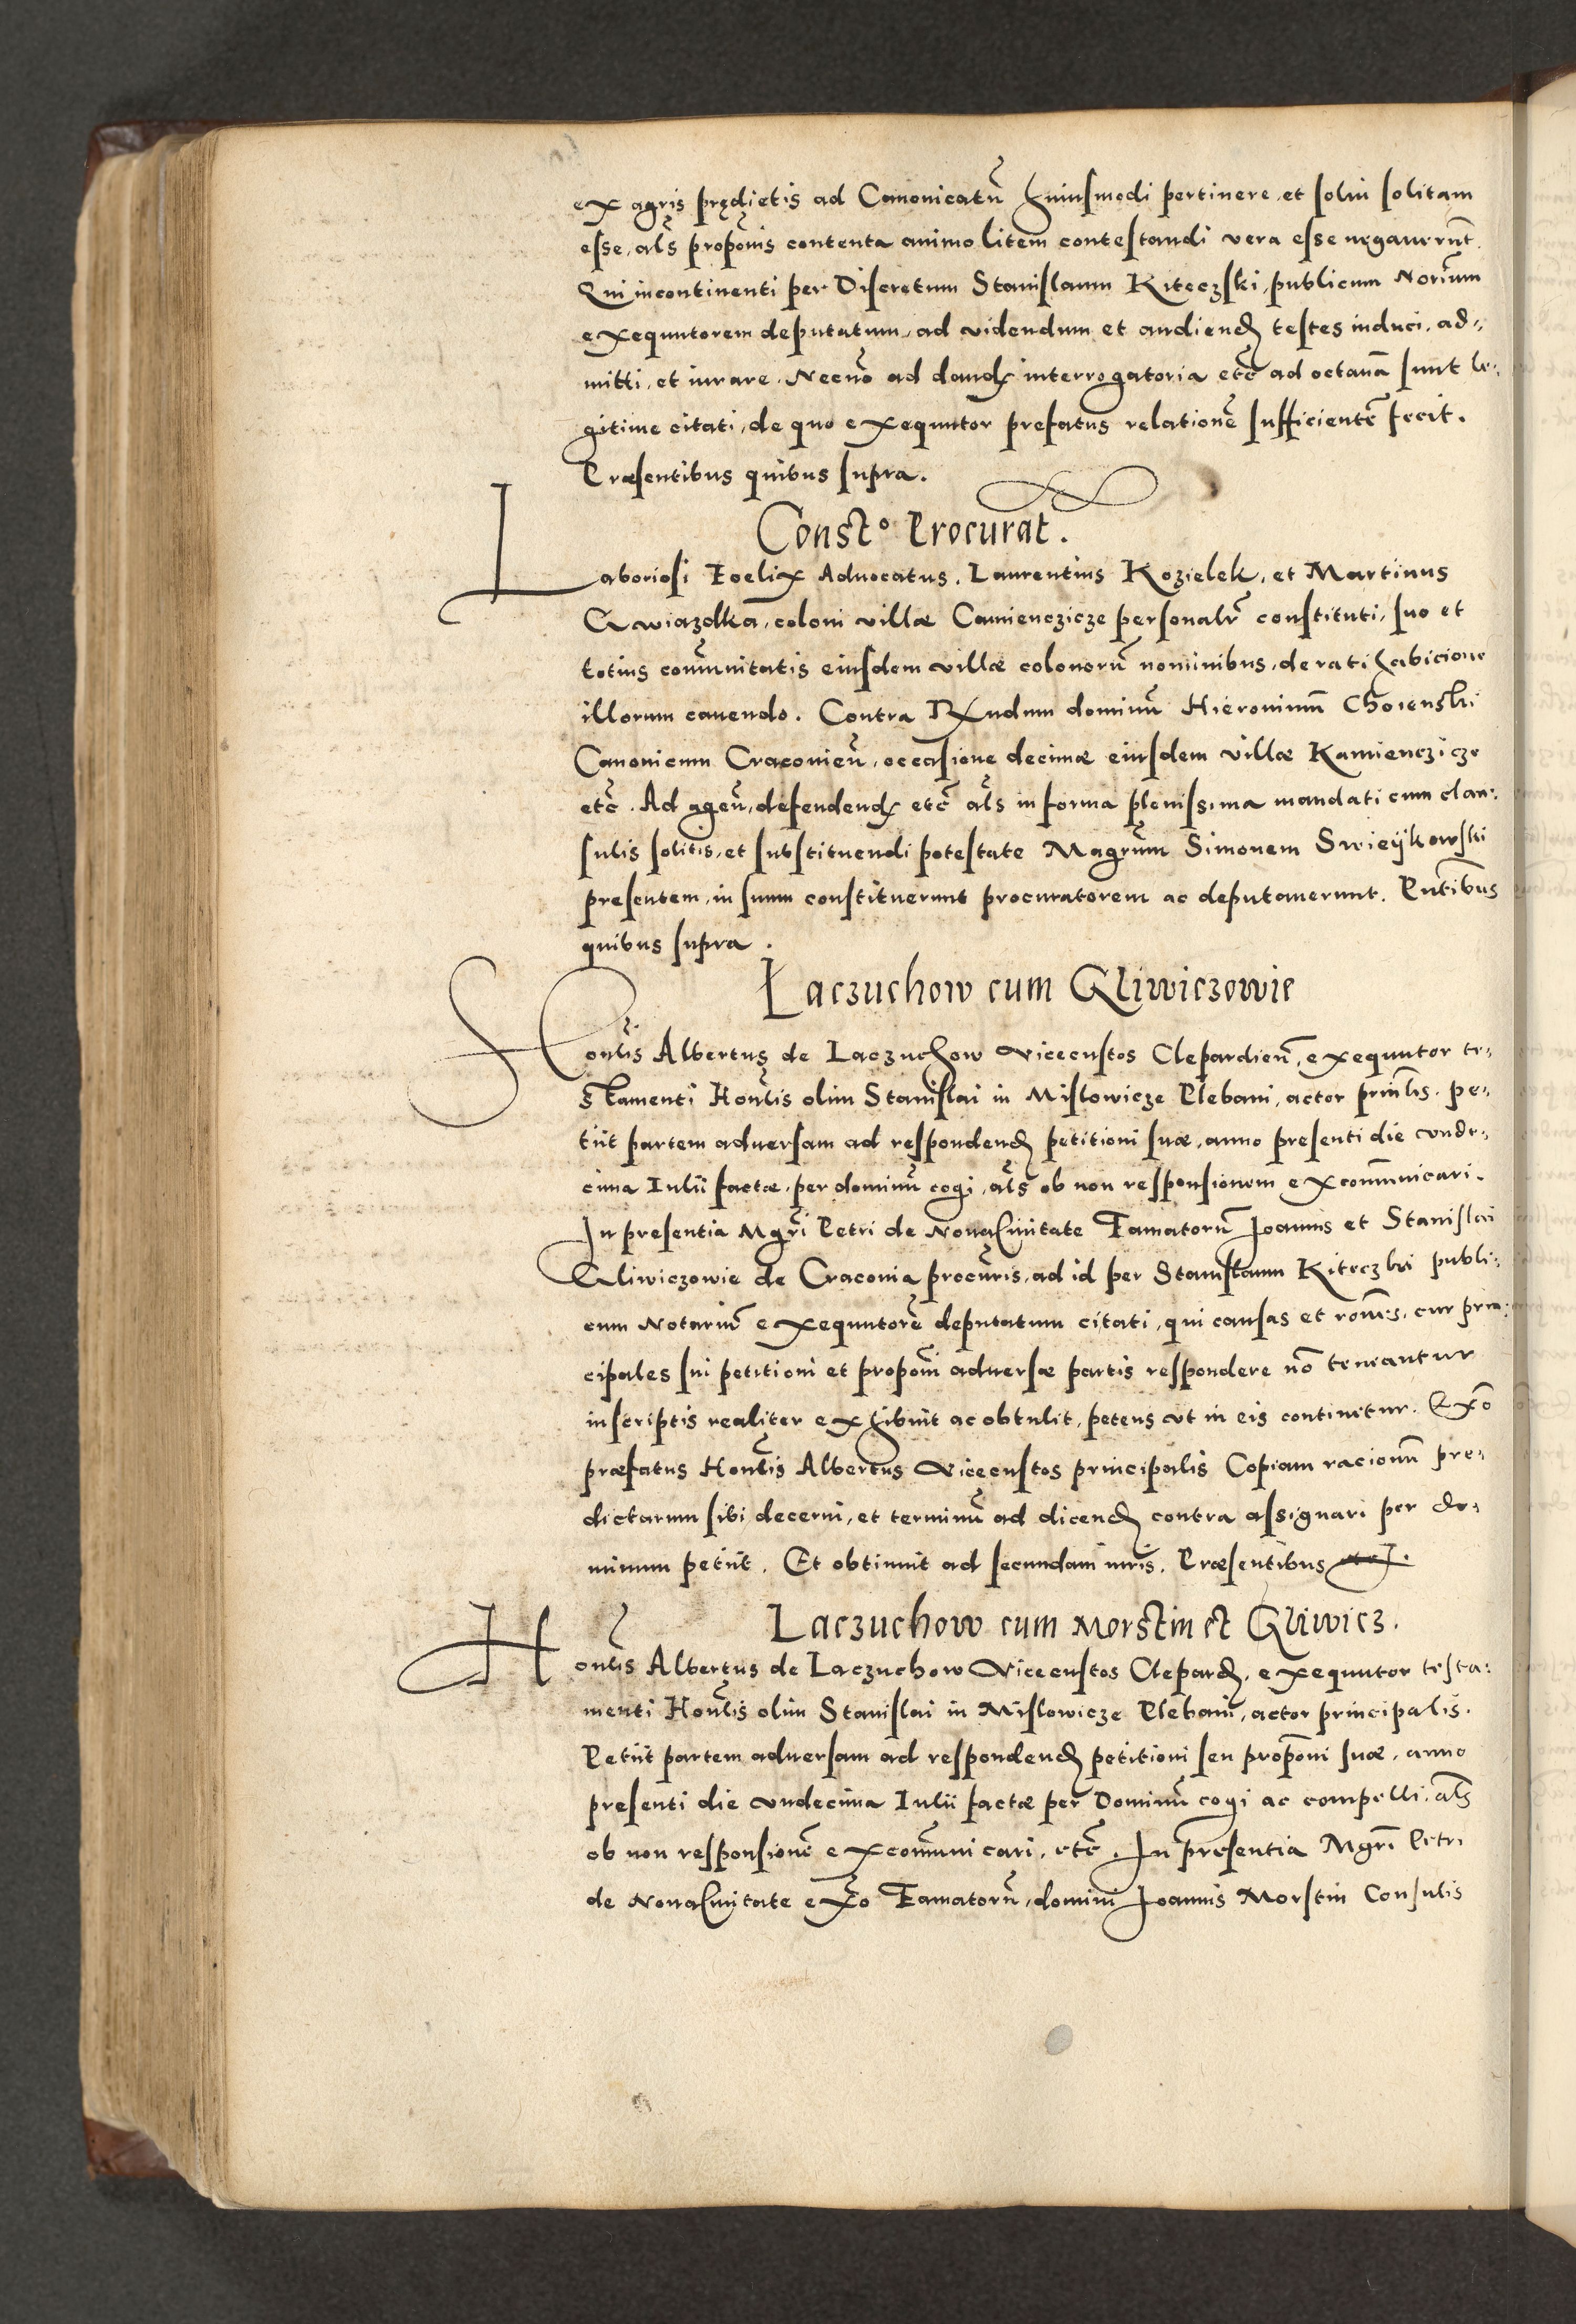 ex agris prędictis ad Canonicatũ huiusmodi pertinere, et solui solitam
esse, al̃s propõnis contenta animo litem contestandi vera esse negauerũt.
Qui incontinenti per Discretum Stanislaum Kiteczski, publicum Norĩum
exequutorem deputatum, ad videndum et audiend testes induci, ad⸗
mitti, et iurare. Necnõ ad dand interrogatoria etc̃ ad octauã sunt le⸗
gitime citati, de quo exequutor prefatus relationẽ sufficientẽ fecit.
Præsentibus quibus supra.
Constᵒ Procurat.
Laboriosi Foelix Aduocatus, Laurentius Kozielek, et Martinus
Gwiazdka, coloni villæ Camienczicze personalr̃ constituti, suo et
totius com̃unitatis eiusdem villæ colonorũ nominibus, de ratihabicione
illorum cauendo. Contra Rndum dominũ Hieronimũ Choienski
Canonicum Cracouieñ, occasione decimæ eiusdem villæ Kamienczicze
etc̃. Ad ageñ, defendend etc̃ al̃s in forma plenissima mandati cum clau⸗
sulis solitis, et substituendi potestate Magr̃um Simonem
presentem, in suum constituerunt procuratorem ac deputauerunt. Pñtibus
quibus supra.
Laczuchow cum Gliwiczowie
Honl̃is Albertus de Laczuchow Vicecustos Clepardieñ, exequutor te⸗
stamenti Honl̃is olim Stanislai in Mislowicze Plebani, actor prinl̃is, pe⸗
tiit partem aduersam ad respondend petitioni suæ, anno presenti die vnde⸗
cima Iulii factæ, per dominũ cogi, al̃s ob non responsionem excom̃unicari.
In presentia Mgr̃i Petri de NouaCiuitate Famatorũ Joannis et Stanislai
Gliwiczowie de Cracouia procũris, ad id per Stanislaum Kiteczki publi⸗
cum Notariũ exequutorẽ deputatum citati, qui causas et rões, cur prin⸗
cipales sui petitioni et propõni aduersæ partis respondere nõ teneantur
in scriptis realiter exhibuit ac obtulit, petens vt in eis continetur. Exõ
præfatus Honl̃is Albertus Vicecustos principalis Copiam racionũ pre⸗
dictarum sibi decerni, et terminũ ad dicend contra assignari per do⸗
minum petiit. Et obtinuit ad secundam iuris. Præsentibus
Laczuchow cum Morstin et Gliwicz.
Honl̃is Albertus de Laczuchow Vicecustos Clepard, exequutor testa⸗
menti Honl̃is olim Stanislai in Mislowicze Plebani, actor principalis.
Petiit partem aduersam ad respondend petitioni seu propõni suæ, anno
presenti die vndecima Iulii factæ per Dominũ cogi ac compelli, al̃s
ob non responsionẽ excom̃unicari, etc̃. In presentia Mgr̃i Petri
de NouaCiuitate exõ Famatorũ, domini Joannis Morstin Consulis